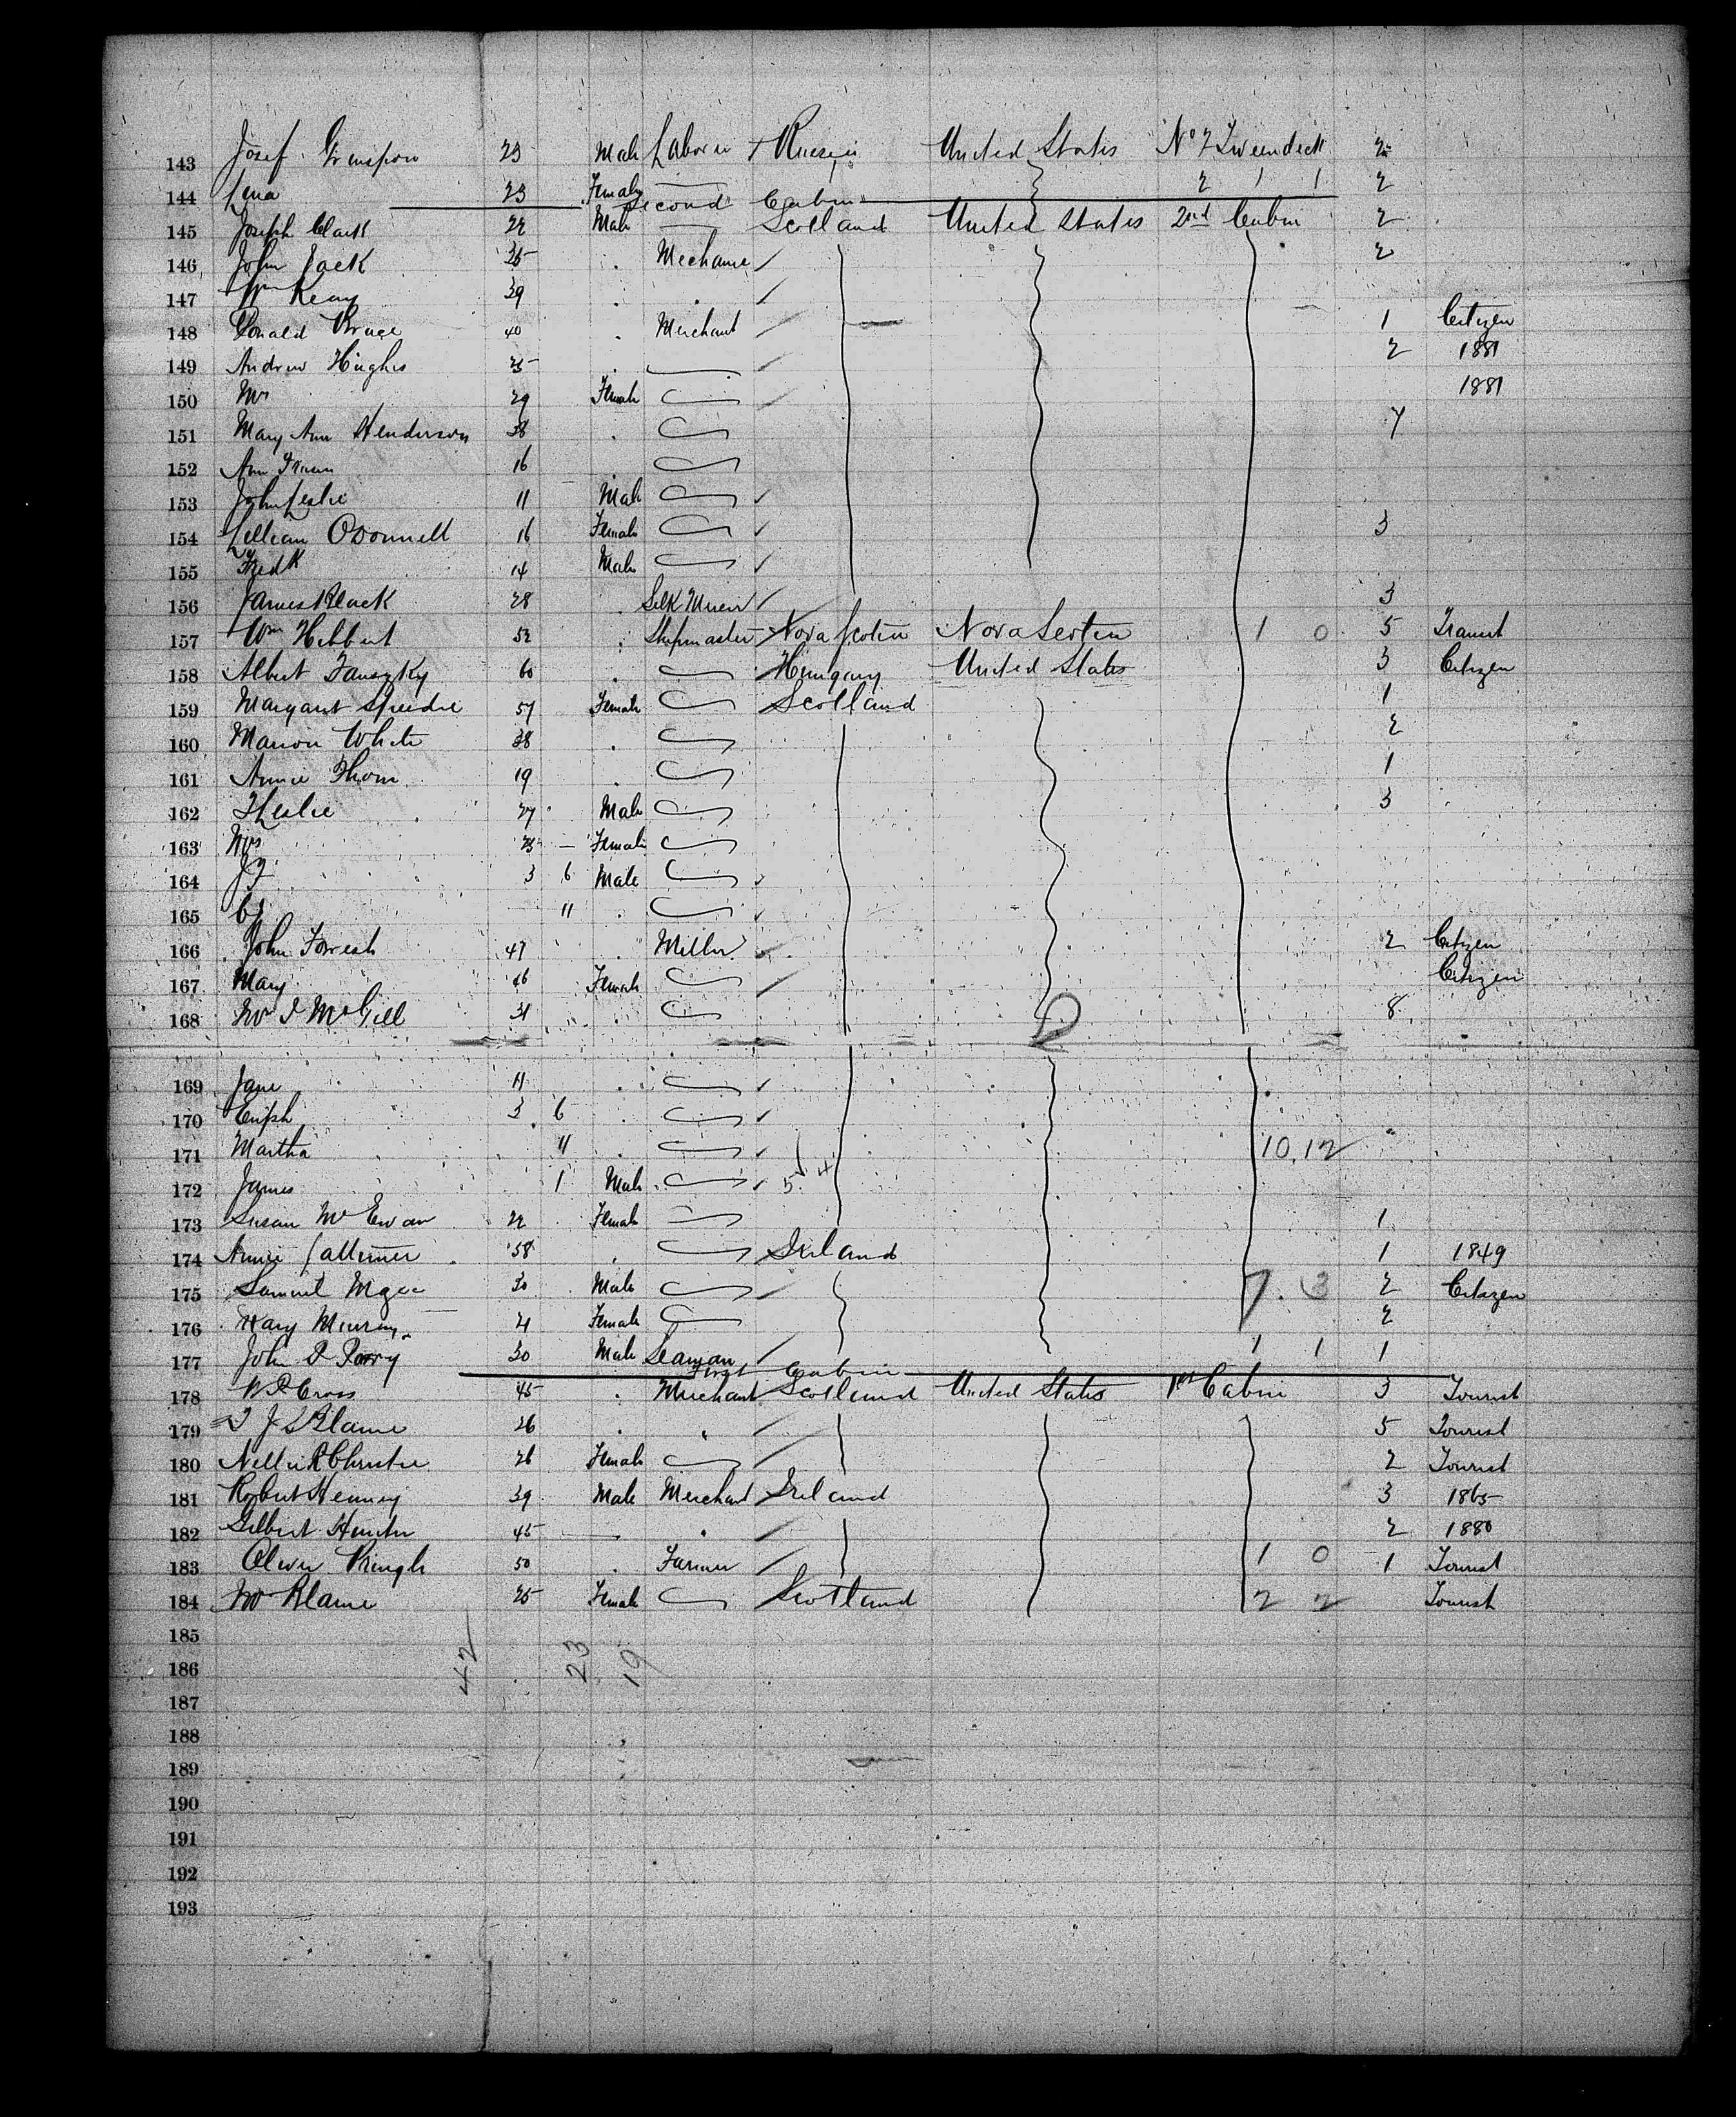 143 Josef 23 Male Laborer Russia United States No 7 Tweendeck 2
144 Lena 23 Female 2 1 1 2
Second Cabin
145 Joseph Clark 22 Male Scotland United States 2nd Cabin 2
146 John Jack 35 Mechanic 2
147 Wm Keay 39
148 Donald Bruce 40 Merchant 1 Citizen
149 Andrew Hughes 35 2 1881
150 Mrs 29 Female 1881
151 Mary Ann Henderson 38 7
152 Ann 16
153 John Leslie 11 Male
154 Lillian ODonnell 16 Female 3
155 Fredk 14 Male
156 James Black 28 Silk 3
157 Wm Hibbert 52 Shipmaster Nova Scotia Nova Scotia 1 0 5 Transit
158 Albert 60 Hungary United States 3 Citizen
159 Margaret Speedie 57 Female Scotland 1
160 Marion White 38 2
161 Annie Thom 19 1
162 T Leslie 27 Male 3
163 Mrs Female
164 3 6 Male
165 11
166 John Forrest 47 Miller 2 Citizen
167 Mary 46 Female Citizen
168 Mrs McGill 31 8
169 Jane 11
170 Euph 3 6
171 Martha 11 10,12
172 James 1 Male 5 4
173 Susan McEwan 22 Female 1
174 Annie 58 Ireland 1 1849
175 Samuel Mgee 30 Male 7. 3 2 Citizen
176 Mary Murray 21 Female 2
177 John Parry 30 Male Seaman 1 1 1
First Cabin
178 Cross 45 Merchant Scotland United States 1st Cabin 3 Tourist
179 Blame 26 5 Tourist
180 Nellie R Christie 26 Female 2 Tourist
181 Robert Henney 39 Male Merchant Ireland 3 1865
182 Gilbert Hunter 45 2 1880
183 Oliver Pringle 50 Farmer 1 0 1 Tourist
184 Mrs Blame 25 Female Scotland 2 2 Tourist
185
42 23 19
186
187
188
189
190
191
192
193